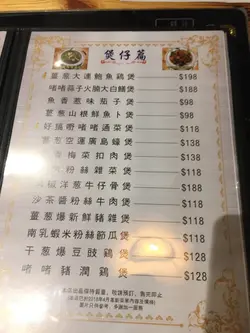 煲仔篇
薑葱大連鮑魚鷄煲 $198
啫啫蒜子火腩大白鱔煲 $198
魚香惹味茄子煲 $98
薑葱山根鮮魚卜煲 $98
啫啫通菜煲 $118
薑葱空運廣島蠔煲 $118
梅菜扣肉煲 $118
粉絲雜菜煲 $118
洋葱牛仔骨煲 $118
沙茶醬粉絲牛肉煲 $118
薑葱爆新鮮豬雜煲 $118
南乳蝦米粉絲節瓜煲 $118
干葱爆豆豉鷄煲 $128
啫啫豬潤鷄煲 $128